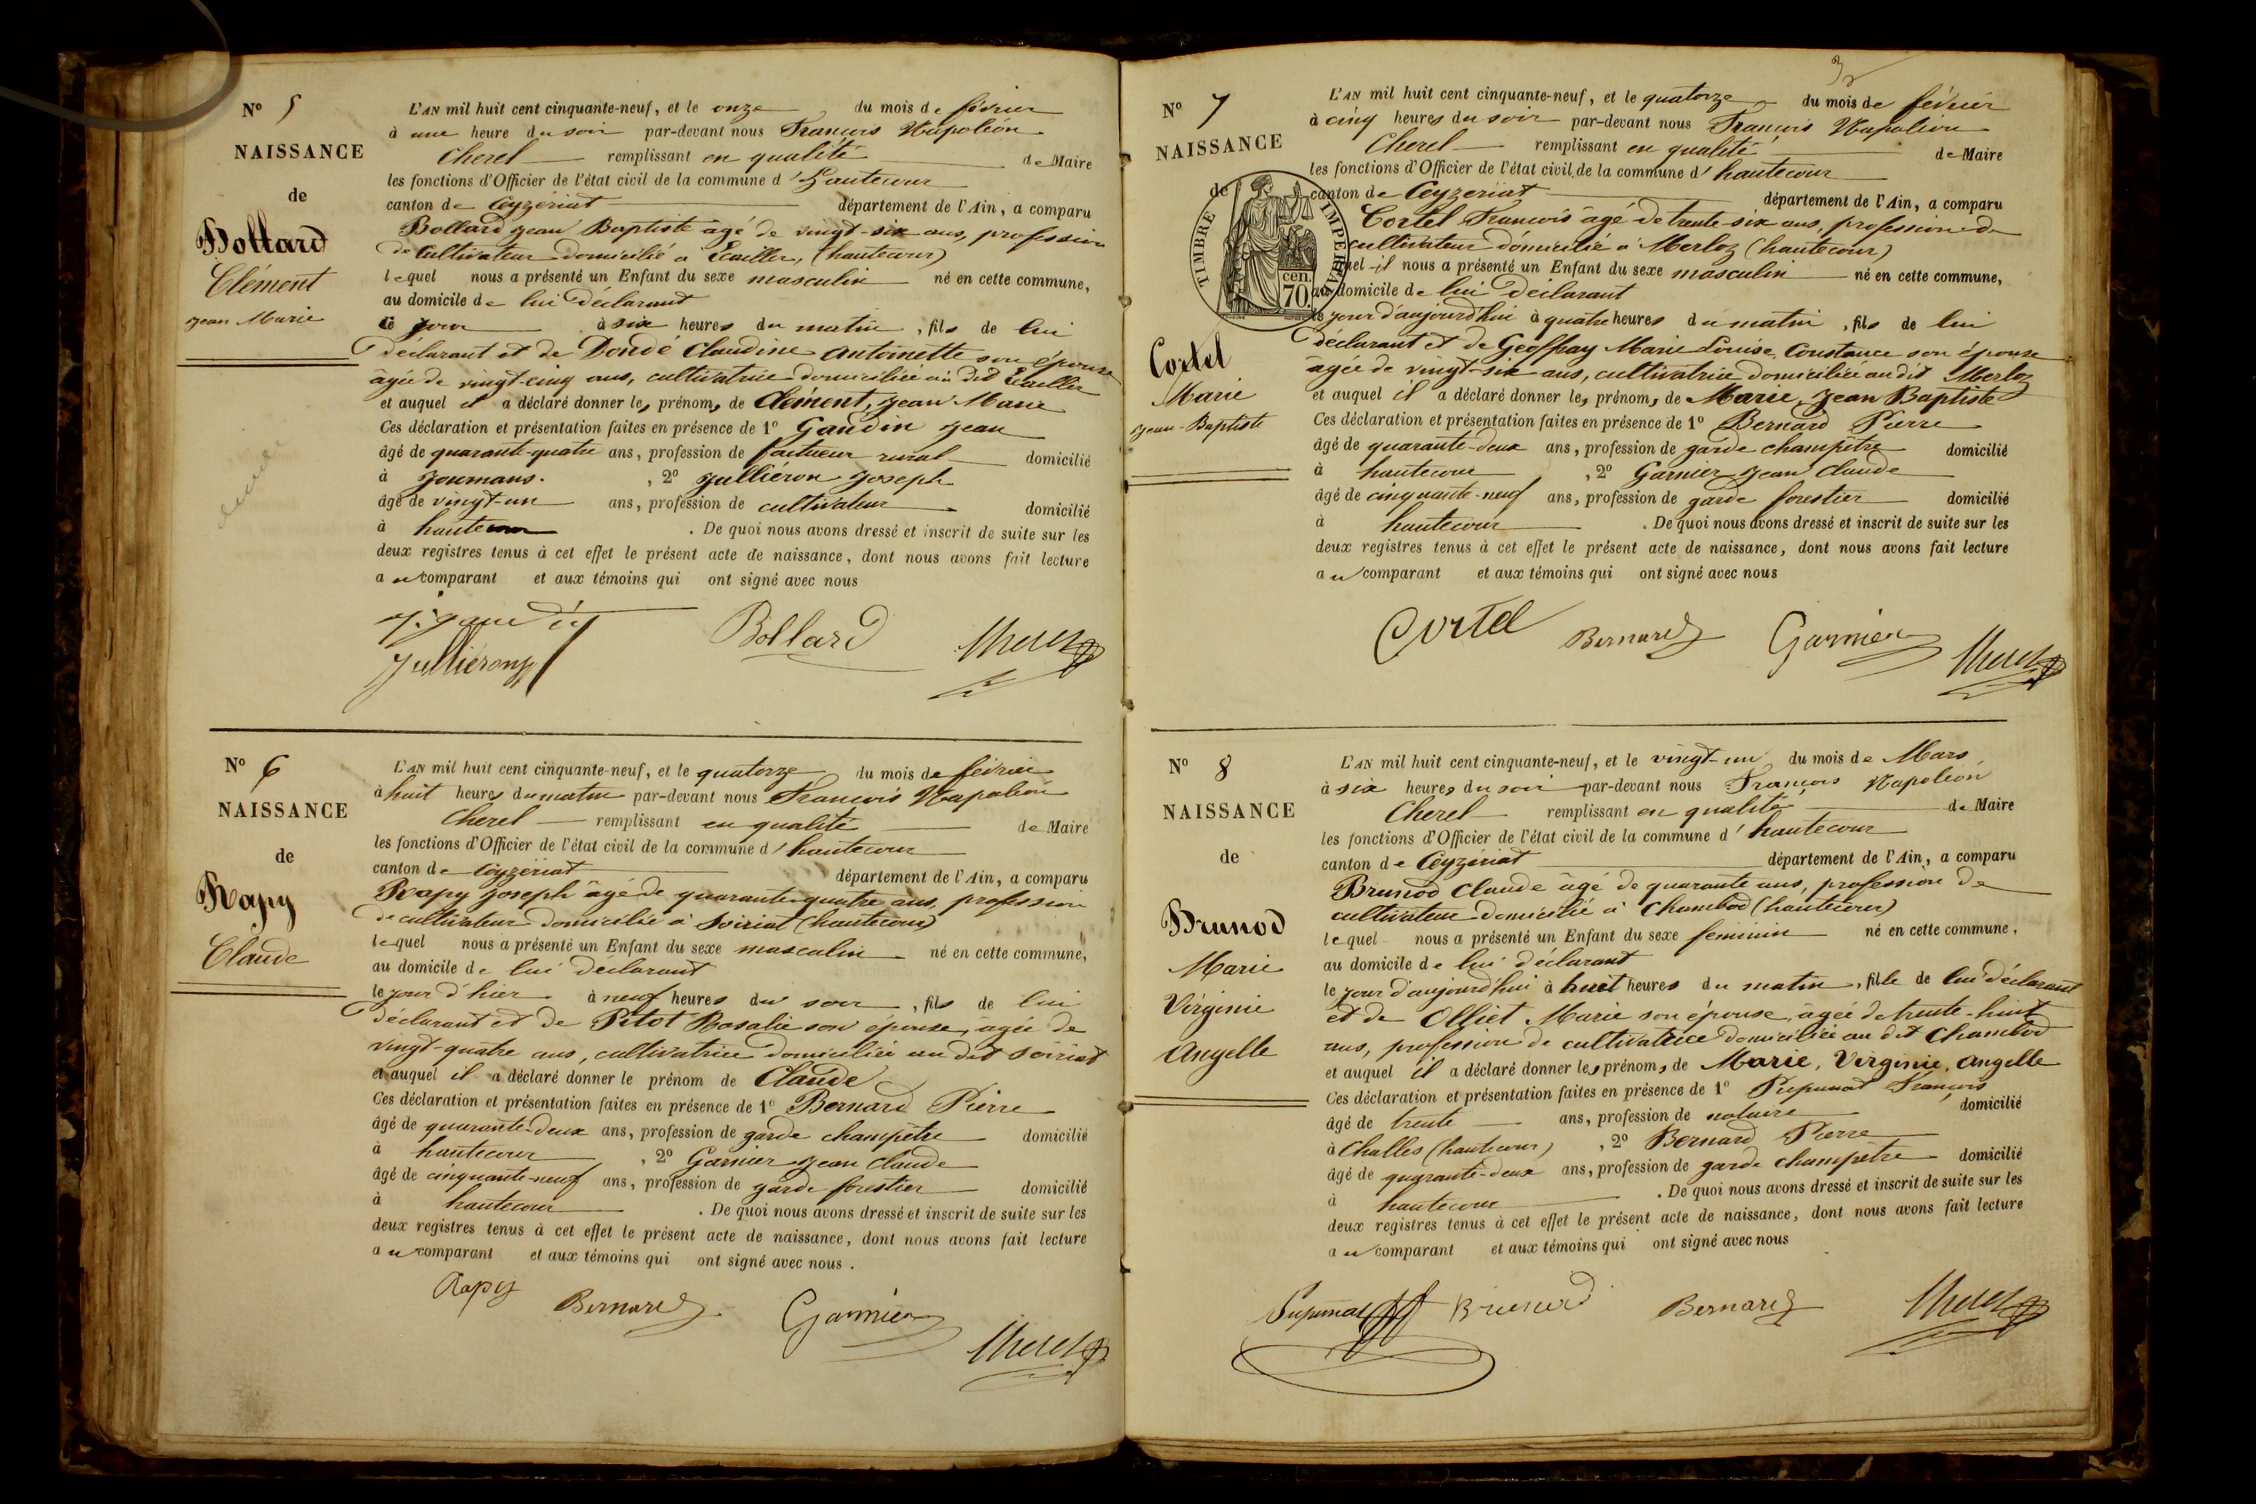 N° 5
NAISSANCE
de
Bollard
Clément
Jean Marie
L'AN mil huit cent cinquante-neuf, et le onze du mois de février
à une heure du soir par-devant nous François Napoléon
Cherel remplissant en qualité de Maire
les fonctions d'Officier de l'état civil de la commune d'hautecour
canton de Ceyzériat département de l'Ain, a comparu
Bollard Jean Baptiste âgé de vingt-six ans, profession
de Cultivateur domicilié à (hautecour)
lequel nous a présenté un Enfant du sexe masculin né en cette commune,
au domicile de lui déclarant
ce jour à six heures du matin, fils de lui
déclarant et de Dondé Claudine Antoinette son épouse
âgée de vingt-cinq ans, cultivatrice domiciliée au dit
et auquel il a déclaré donner les prénoms de Clément, Jean Marie
Ces déclaration et présentation faites en présence de 1° Gaudin Jean
âgé de quarante-quatre ans, profession de facteur rural domicilié
à Journans, 2° Jullièron Joseph
âgé de vingt-un ans, profession de cultivateur domicilié
à hautecour. De quoi nous avons dressé et inscrit de suite sur les
deux registres tenus à cet effet le présent acte de naissance, dont nous avons fait lecture
au comparant et aux témoins qui ont signé avec nous
Bollard Cherel
Jullièron
N° 6
NAISSANCE
de
Rapy
Claude
L'AN mil huit cent cinquante-neuf, et le quatorze du mois de février
à huit heures du matin par-devant nous François Napoléon
Cherel remplissant en qualité de Maire
les fonctions d'Officier de l'état civil de la commune d'hautecour
canton de Ceyzériat département de l'Ain, a comparu
Rapy Joseph âgé de quarante-quatre ans, profession
de cultivateur domicilié à Soiriat (hautecour)
lequel nous a présenté un Enfant du sexe masculin né en cette commune,
au domicile de lui déclarant
le jour d'hier à neuf heures du soir, fils de lui
déclarant et de Pitot Rosalie son épouse, âgée de
vingt-quatre ans, cultivatrice domiciliée au dit Soiriat
et auquel il a déclaré donner le prénom de Claude
Ces déclaration et présentation faites en présence de 1° Bernard Pierre
âgé de quarante-deux ans, profession de garde champêtre domicilié
à hautecour, 2° Garnier Jean Claude
âgé de cinquante-neuf ans, profession de garde forestier domicilié
à hautecour. De quoi nous avons dressé et inscrit de suite sur les
deux registres tenus à cet effet le présent acte de naissance, dont nous avons fait lecture
au comparant et aux témoins qui ont signé avec nous.
Rapy Bernard Garnier Cherel
N° 7
NAISSANCE
de
TIMBRE IMPERIAL
70 cen.
Cortel
Marie
Jean-Baptiste
L'AN mil huit cent cinquante-neuf, et le quatorze du mois de février
à cinq heures du soir par-devant nous François Napoléon
Cherel remplissant en qualité de Maire
les fonctions d'Officier de l'état civil de la commune d'hautecour
canton de Ceyzériat département de l'Ain, a comparu
Cortel François âgé de trente-six ans, profession de
cultivateur domicilié à Merloz (hautecour)
lequel il nous a présenté un Enfant du sexe masculin né en cette commune,
au domicile de lui déclarant
le jour d'aujourd'hui à quatre heures du matin, fils de lui
déclarant et de Geoffray Marie Louise Constance son épouse
âgée de vingt-six ans, cultivatrice domiciliée au dit Merloz
et auquel il a déclaré donner les prénoms de Marie, Jean Baptiste
Ces déclaration et présentation faites en présence de 1° Bernard Pierre
âgé de quarante-deux ans, profession de garde champêtre domicilié
à hautecour, 2° Garnier Jean Claude
âgé de cinquante-neuf ans, profession de garde forestier domicilié
à hautecour. De quoi nous avons dressé et inscrit de suite sur les
deux registres tenus à cet effet le présent acte de naissance, dont nous avons fait lecture
au comparant et aux témoins qui ont signé avec nous
Cortel Bernard Garnier Cherel
N° 8
NAISSANCE
de
Brunod
Marie
Virginie
Angelle
L'AN mil huit cent cinquante-neuf, et le vingt-un du mois de Mars
à six heures du soir par-devant nous François Napoléon
Cherel remplissant en qualité de Maire
les fonctions d'Officier de l'état civil de la commune d'hautecour
canton de Ceyzériat département de l'Ain, a comparu
Brunod Claude âgé de quarante ans, profession de
cultivateur domicilié à Chambod (hautecour)
lequel nous a présenté un Enfant du sexe feminin né en cette commune,
au domicile de lui déclarant
le jour d'aujourd'hui à huit heures du matin, fille de lui déclarant
et de Olliet Marie son épouse, âgée de trente-huit
ans, profession de cultivatrice domiciliée au dit Chambod
et auquel il a déclaré donner les prénoms de Marie, Virginie, Angelle
Ces déclaration et présentation faites en présence de 1° François
âgé de trente ans, profession de notaire domicilié
à Challes (hautecour), 2° Bernard Pierre
âgé de quarante-deux ans, profession de garde champêtre domicilié
à hautecour. De quoi nous avons dressé et inscrit de suite sur les
deux registres tenus à cet effet le présent acte de naissance, dont nous avons fait lecture
au comparant et aux témoins qui ont signé avec nous
Brunod Bernard Cherel